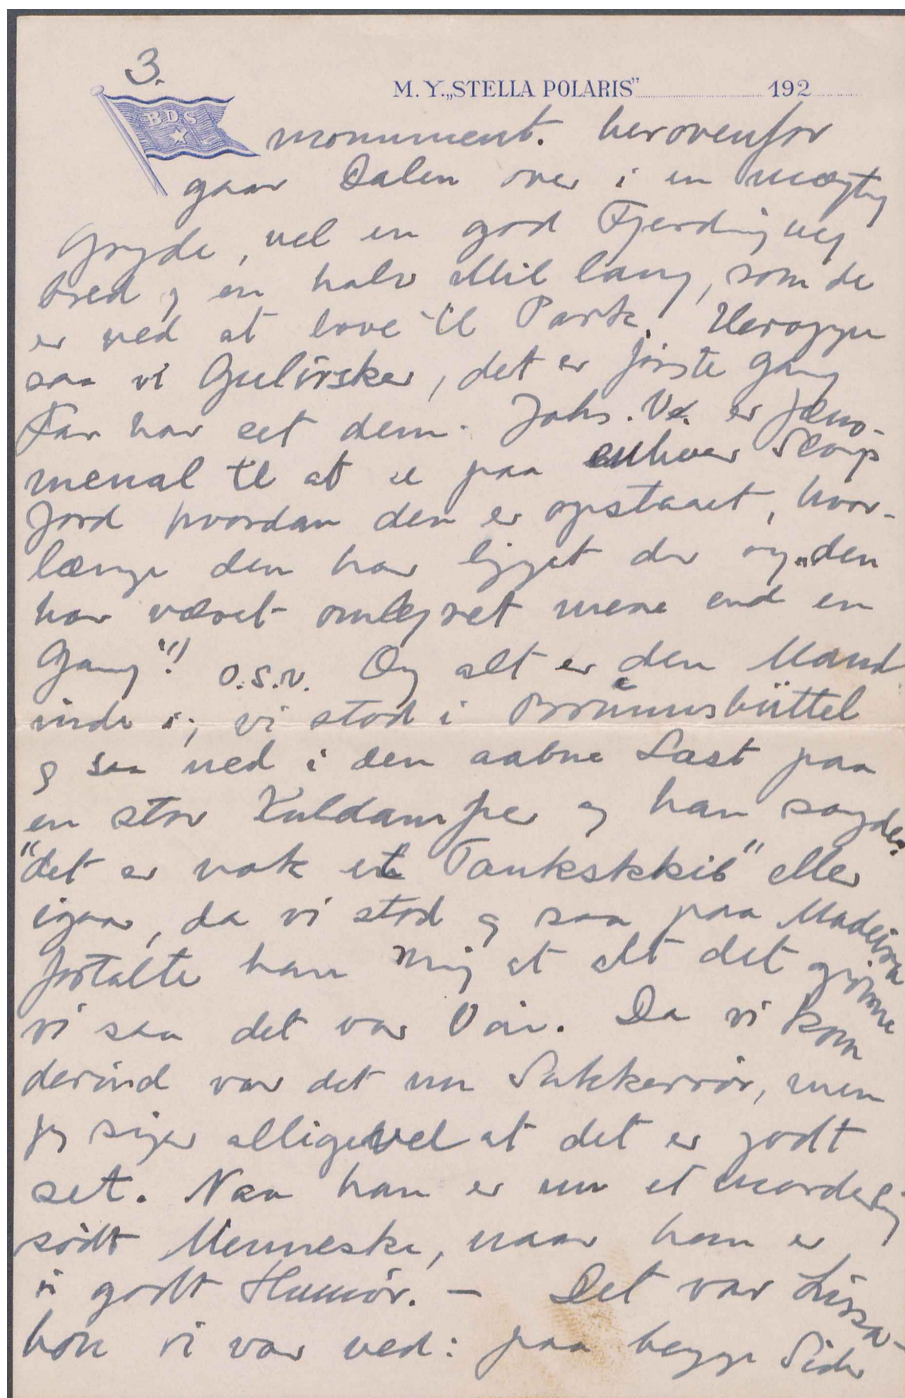 3.
M. Y. „STELLA POLARIS" 192
BDS
monument. herovenfor
gaar Dalen over i en mægtig
Gryde, vel en god Fjerdingvej
bred og en halv Mil lang, som de
er ved at lave til Park. Heroppe
saa vi Gulirsker, det er første Gang
Far har set dem. Johs. V. er fæno-
menal til at se paa enhver Slags
Jord hvordan den er opstaaet, hvor-
længe den har ligget der og „den
har været omlejret mere end en
Gang"! o.s.v. Og alt er den Mand
inde i; vi stod i Brünnsbüttel
og saa ned i den aabne Last paa
en stor Kuldamper og han sagde:
"det er nok et Tankskkib" eller
igaar, da vi stod og saa paa Madeira
fortalte han mig at alt det grønne
vi saa det var Vin. Da vi kom
derind var det nu Sukkerrør, men
jeg siger alligevel at det er godt
set. Naa han er nu et morderlig
sødt Menneske, naar han er
i godt Humør. — Det var Lissa-
bon vi var ved: paa begge Sider